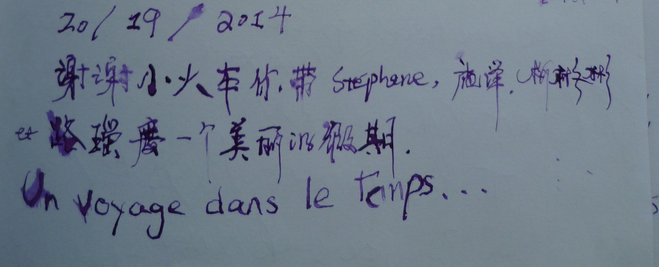 20/19/2014
谢谢小火车你.带 Stephane, 施洋.
et 路瑾度一个美丽的假期.
Un voyage dans le temps...